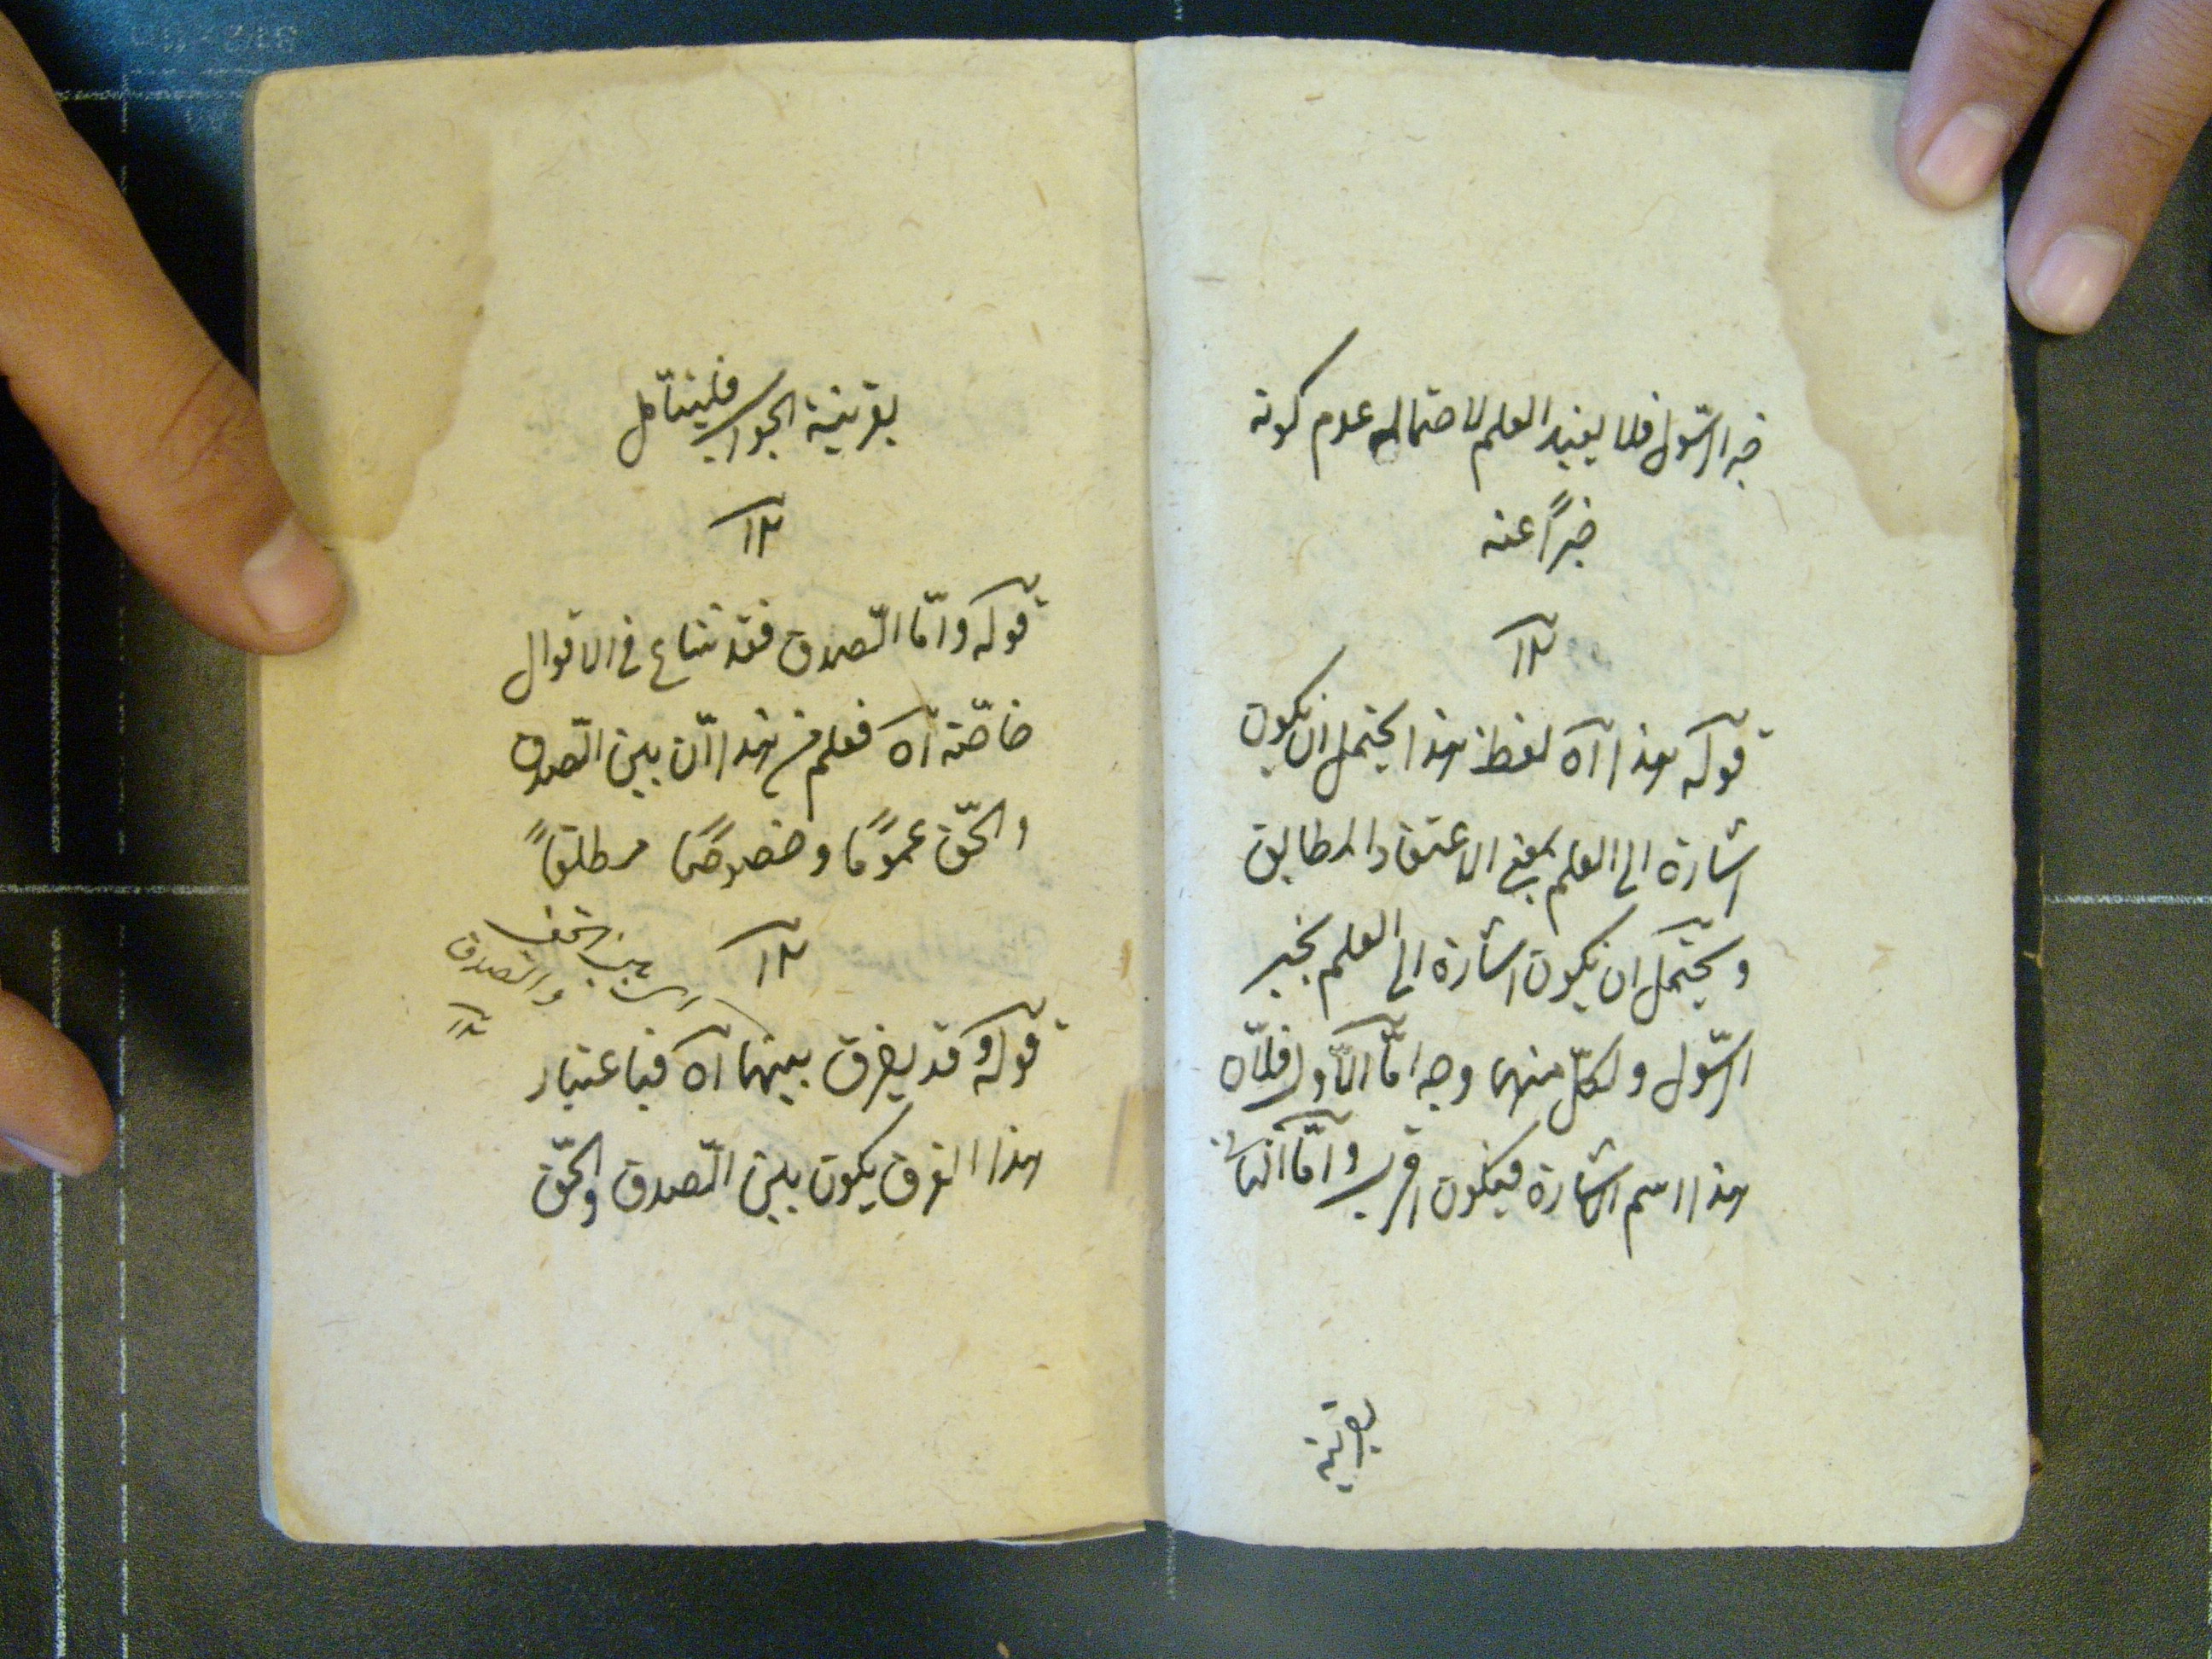 خبر الرّسول فلا يفيد العلم لاحتماله عدم كونه
خبراً عنه
١٢
قوله هذا آه لفظ هذا يحتمل ان يكون
اشارة الى العلم بمعنى الاعتقاد المطابق
ويحتمل ان يكون اشارة الى العلم بخبر
الرّسول ولكلّ منهما وجه امّا الأوّل فلأنّ
هذا اسم الاشارة فيكون اقرب وامّا الثانى
بقرينة
بقرينة الجواب فليتأمل
١٢
قوله وامّا الصّدق فقد شاع فى الاقوال
خاصّة آه فعلم من هذا انّ بين الصّدق
والحقّ عموماً وخصوصاً مطلقاً
١٢
اى بين الحق
والصّدق
١٢
قوله وقد يفرق بينهما آه فباعتبار
هذا الفرق يكون بين الصّدق والحقّ